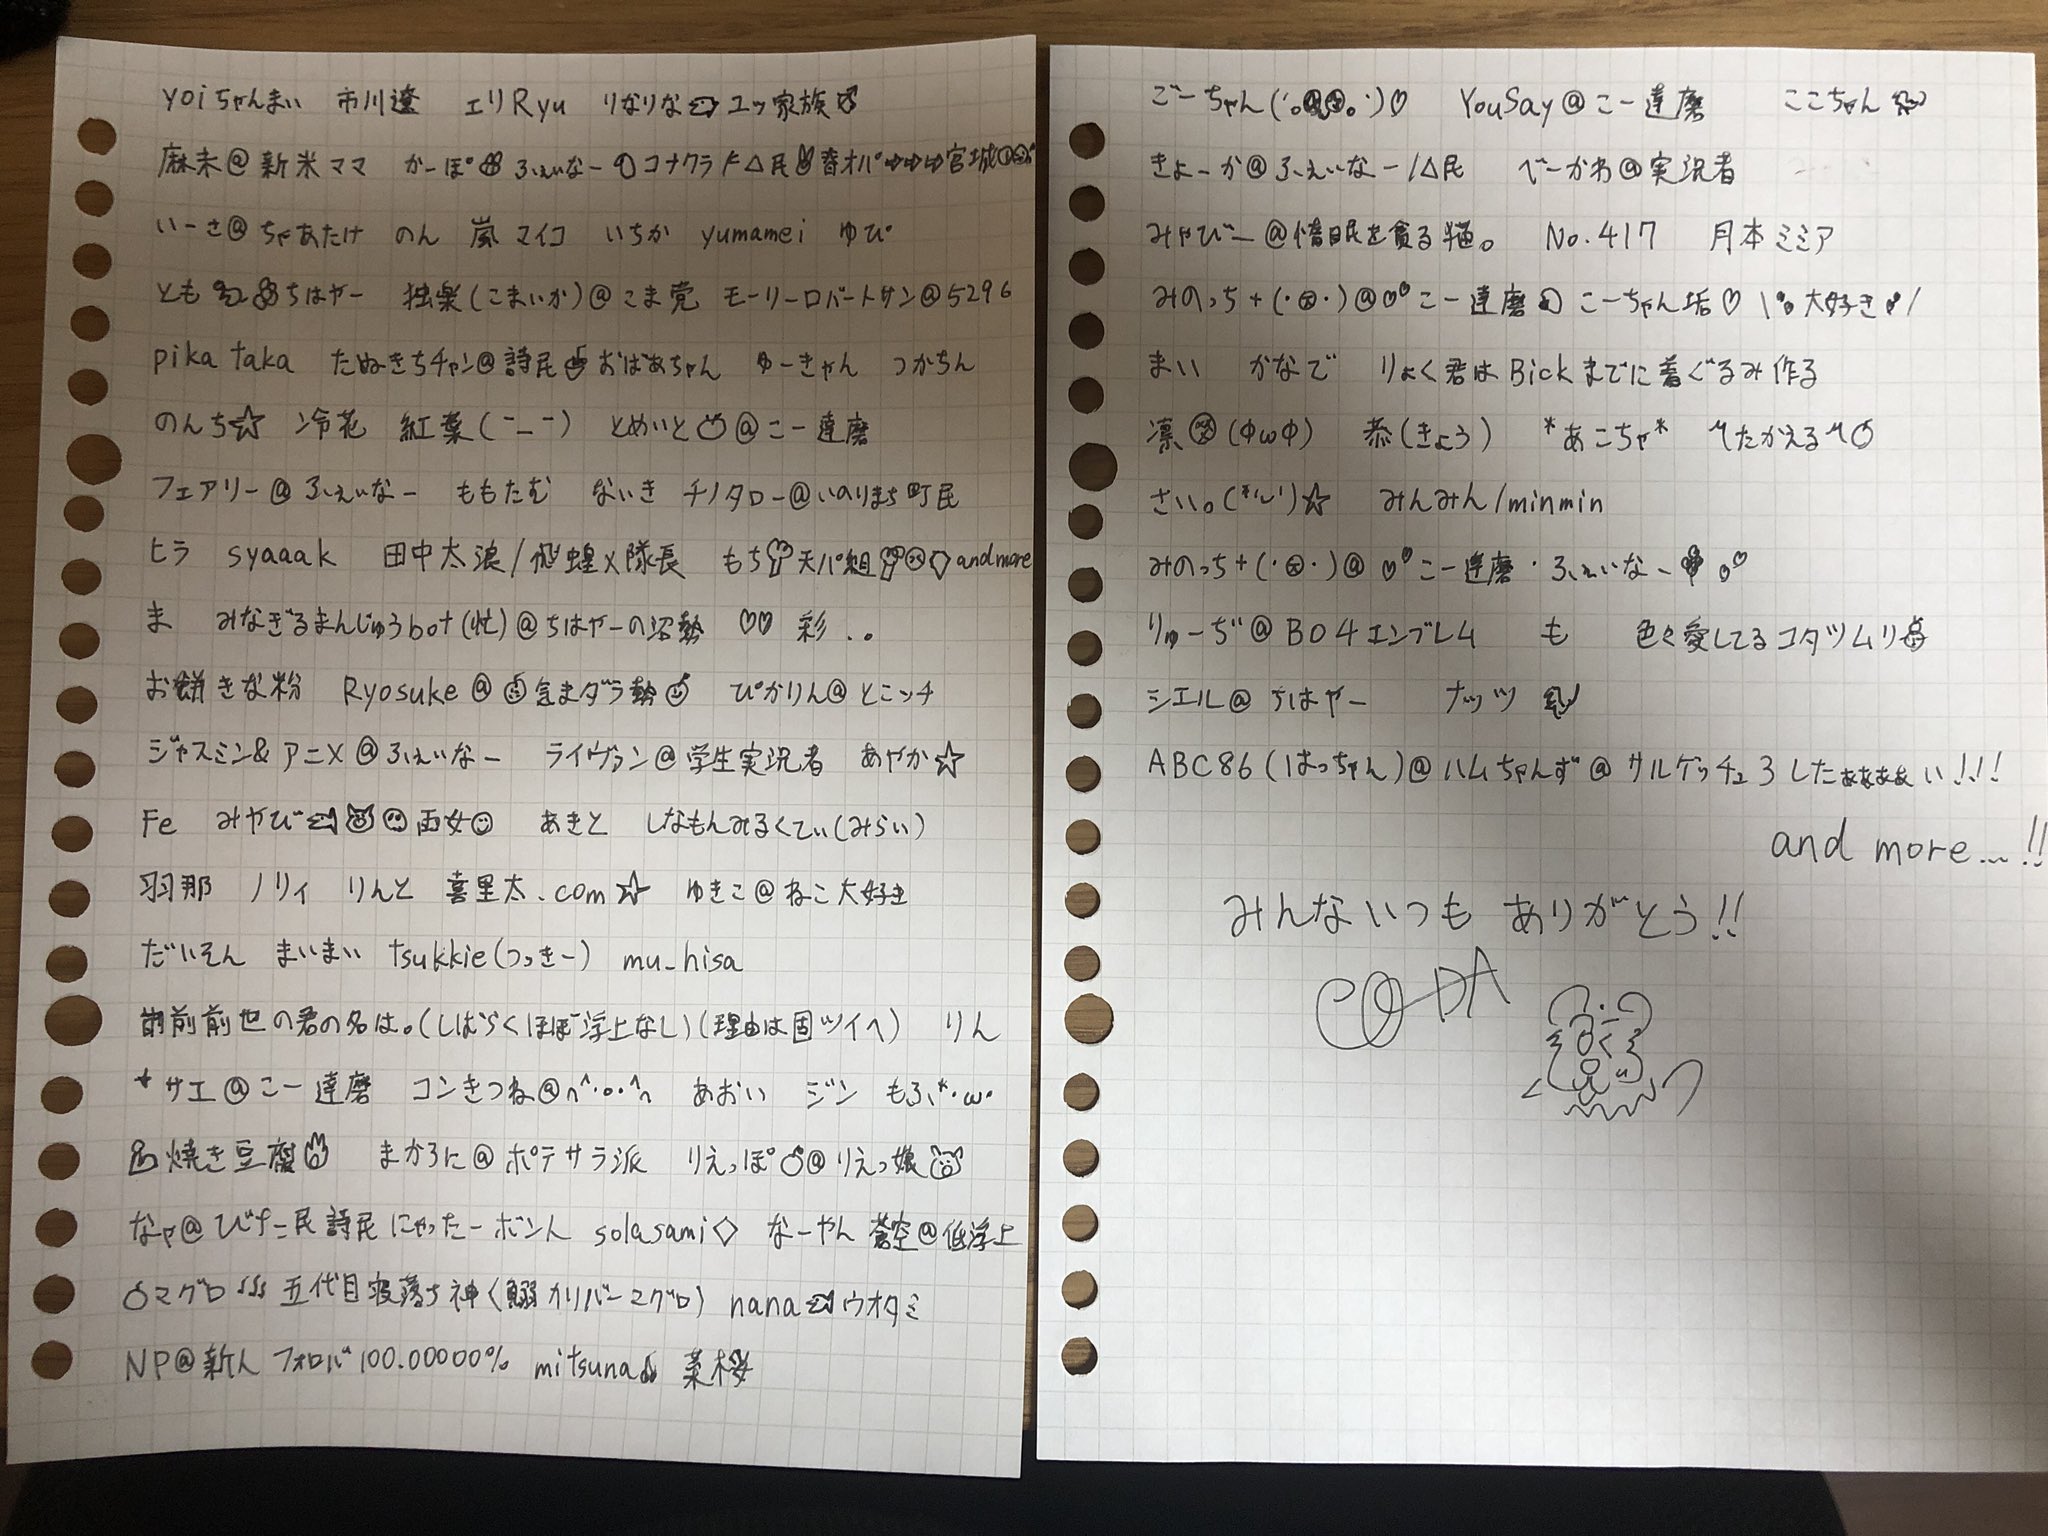 yoiちゃんまい 市川遼 エリRyu りなりな ユッ家族
麻未@新米ママ かーぽ ふぇいなー コナクラ 民 春オパゆゆゆ宮城
いーさ@ちゃあたけ のん 嵐マイコ いちか yumamei ゆぴ
とも ちはやー 独楽(こまいか)@こま党 モーリーロバートサン@5296
pika taka たぬきちチャン@詩民 おばあちゃん ゆーきゃん つかちん
のんち☆ 冷花 紅葉(ー_ー) とめいと @こー達磨
フェアリー@ふぇいなー ももたむ ないき チノタロー@いのりまち町民
ヒラ syaaak 田中太浪/飛蝗×隊長 もち 天パ組 and more
ま みなぎるまんじゅうbot(忙)@ちはやーの沼勢 ♡♡ 彩..
お餅きな粉 Ryosuke@ 気まダラ勢 ぴかりん@とこニッチ
ジャスミン&アニメ@ふぇいなー ライヴァン@学生実況者 あやか☆
Fe みやび 雨女 あきと しなもんみるくてぃ(みらい)
羽那 ノリィ りんと 喜里太.com☆ ゆきこ@ねこ大好き
だいそん まいまい tsukkie(つっきー) mu_hisa
前前前世の君の名は。(しばらくほぼ浮上なし)(理由は固ツイへ) りん
*サエ@こー達磨 コンきつね@∩^・o・^∩ あおい ジン もふ*・ω・
焼き豆腐 まかろに@ポテサラ派 りえっぽ @りえっ娘
なァ@ 民詩民 にゃったーボン人 solasami◇ なーやん 蒼空@低浮上
マグロ 五代目寝落ち神(鰯カリバーマグロ) nana ウオタミ
NP@新人 フォロバ100.00000% mitsuna 菜桜
ごーちゃん ♡ YouSay@こー達磨 ここちゃん
きょーか@ふぇいなー/△民 べーかわ@実況者
みゃびー@惰眠を貪る猫。 No.417 月本ミミア
みのっち+ @ こー達磨 こーちゃん垢♡ 大好き
まい かなで りょく君はBickまでに着ぐるみ作る
凛 (ΦωΦ) 恭(きょう) *あこちゃ* たかえる
さい。 ☆ みんみん/minmin
みのっち+ @ こー達磨・ふぇいなー
りゅーぢ@BO4エンブレム も 色々愛してるコタツムリ
シエル@ちはやー ナッツ
ABC86(はっちゃん)@ハムちゃんず@サルゲッチュ3したぁぁぁぁい!!!
and more...!!
みんないつも ありがとう!!
CODA